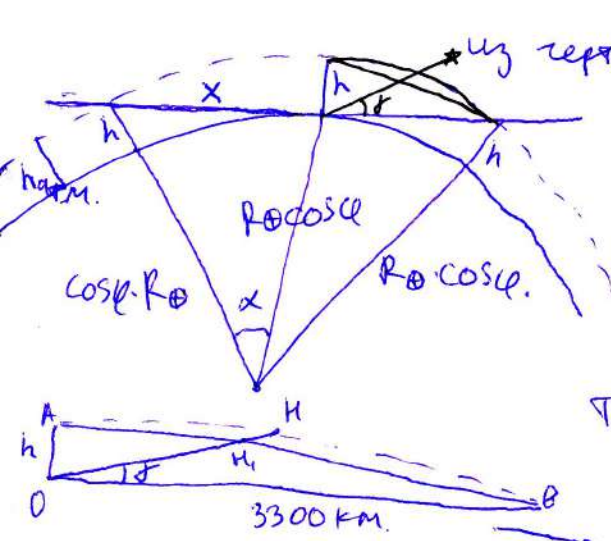 из черт
x
h
γ
h
h
hатм.
R⊕cosφ
cosφ·R⊕
R⊕·cosφ.
α
A
H
h
H₁
γ
O
B
3300 км.